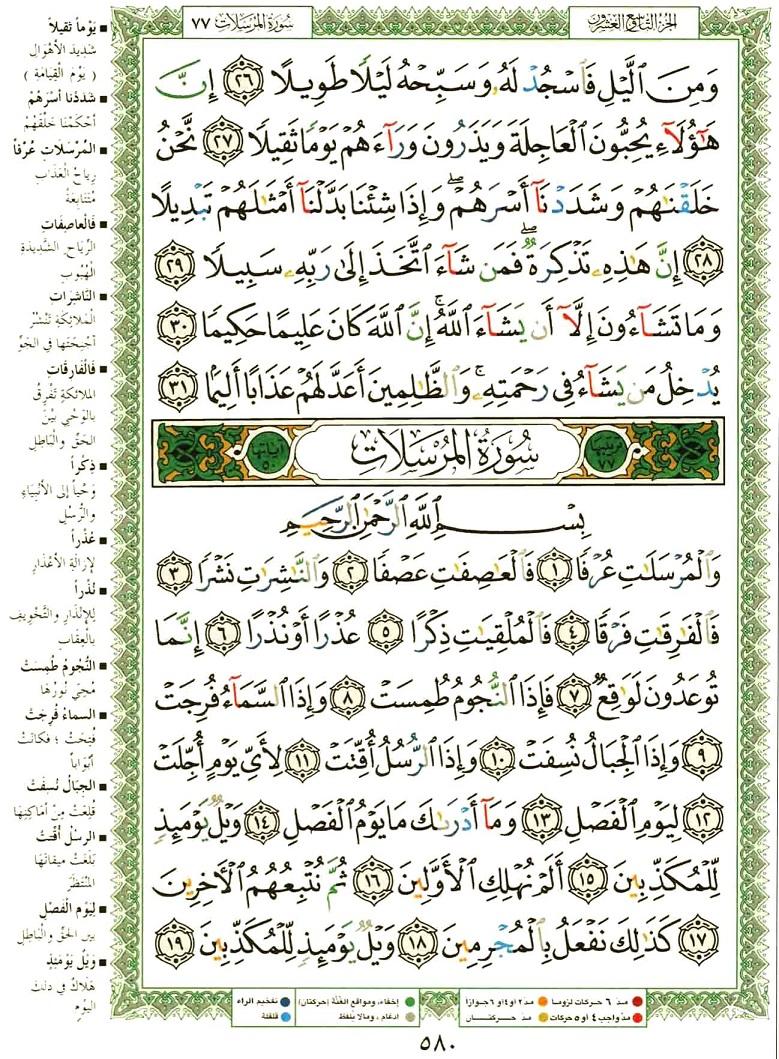 الجزء التاسع والعشرون
سورة المرسلات ٧٧
وَمِنَ ٱلَّيْلِ فَٱسْجُدْ لَهُۥ وَسَبِّحْهُ لَيْلًا طَوِيلًا ٢٦ إِنَّ
هَٰٓؤُلَآءِ يُحِبُّونَ ٱلْعَاجِلَةَ وَيَذَرُونَ وَرَآءَهُمْ يَوْمًا ثَقِيلًا ٢٧ نَّحْنُ
خَلَقْنَٰهُمْ وَشَدَدْنَآ أَسْرَهُمْ ۖ وَإِذَا شِئْنَا بَدَّلْنَآ أَمْثَٰلَهُمْ تَبْدِيلًا
٢٨ إِنَّ هَٰذِهِۦ تَذْكِرَةٌ ۖ فَمَن شَآءَ ٱتَّخَذَ إِلَىٰ رَبِّهِۦ سَبِيلًا ٢٩
وَمَا تَشَآءُونَ إِلَّآ أَن يَشَآءَ ٱللَّهُ ۚ إِنَّ ٱللَّهَ كَانَ عَلِيمًا حَكِيمًا ٣٠
يُدْخِلُ مَن يَشَآءُ فِى رَحْمَتِهِۦ ۚ وَٱلظَّٰلِمِينَ أَعَدَّ لَهُمْ عَذَابًا أَلِيمًۢا ٣١
ترتيبها ٧٧ سُورَةُ المُرْسَلَات آياتها ٥٠
بِسْمِ ٱللَّهِ ٱلرَّحْمَٰنِ ٱلرَّحِيمِ
وَٱلْمُرْسَلَٰتِ عُرْفًا ١ فَٱلْعَٰصِفَٰتِ عَصْفًا ٢ وَٱلنَّٰشِرَٰتِ نَشْرًا ٣
فَٱلْفَٰرِقَٰتِ فَرْقًا ٤ فَٱلْمُلْقِيَٰتِ ذِكْرًا ٥ عُذْرًا أَوْ نُذْرًا ٦ إِنَّمَا
تُوعَدُونَ لَوَٰقِعٌ ٧ فَإِذَا ٱلنُّجُومُ طُمِسَتْ ٨ وَإِذَا ٱلسَّمَآءُ فُرِجَتْ
٩ وَإِذَا ٱلْجِبَالُ نُسِفَتْ ١٠ وَإِذَا ٱلرُّسُلُ أُقِّتَتْ ١١ لِأَىِّ يَوْمٍ أُجِّلَتْ
١٢ لِيَوْمِ ٱلْفَصْلِ ١٣ وَمَآ أَدْرَىٰكَ مَا يَوْمُ ٱلْفَصْلِ ١٤ وَيْلٌ يَوْمَئِذٍ
لِّلْمُكَذِّبِينَ ١٥ أَلَمْ نُهْلِكِ ٱلْأَوَّلِينَ ١٦ ثُمَّ نُتْبِعُهُمُ ٱلْءَاخِرِينَ
١٧ كَذَٰلِكَ نَفْعَلُ بِٱلْمُجْرِمِينَ ١٨ وَيْلٌ يَوْمَئِذٍ لِّلْمُكَذِّبِينَ ١٩
يَوْماً ثقيلاً
شَدِيدَ الأَهْوَالِ
( يَوْمَ القِيَامَةِ )
شدَدْنا أسْرَهُمْ
أَحْكَمْنَا خَلْقَهُمْ
المُرْسَلات عُرْفاً
رِيَاحُ العَذَابِ
مُتَتَابِعَةً
فَالعاصِفاتِ
الرِّيَاحِ الشَّدِيدَةِ
الْهُبُوبِ
النَّاشِرَات
الْمَلَائِكَةِ تَنْشُرُ
أَجْنِحَتَهَا في الجَوِّ
فَالْفارِقَات
الملائكةِ تَفْرِقُ
بالوَحْيِ بَيْنَ
الحَقِّ والبَاطِلِ
ذِكْراً
وَحْياً إلى الأَنْبِيَاءِ
والرُّسُلِ
عُذْراً
لإِزَالَةِ الأَعْذَارِ
نُذْراً
لِلإِنْذَارِ والتَّخْوِيفِ
بالْعِقَابِ
النُّجُومُ طُمِسَتْ
مُحِيَ نُورُهَا
السماءُ فُرِجَتْ
فُتِحَتْ ؛ فكانَتْ
أَبْوَاباً
الجِبَالُ نُسِفَتْ
قُلِعَتْ مِنْ أَمَاكِنِهَا
الرسُلُ أُقِّتَتْ
بَلَغَتْ مِيقاتَهَا
المُنْتَظَرَ
لِيَوْمِ الْفَصْلِ
بين الحَقِّ والْبَاطِلِ
وَيْلٌ يَوْمَئِذٍ
هَلَاكٌ في ذلك
اليومِ
مدّ ٦ حركات لزوماً
مدّ ٢ أو ٤ أو ٦ جوازاً
إخفاء، ومواقع الغُنَّة (حركتان)
تفخيم الراء
مدّ واجب ٤ أو ٥ حركات
مدّ حركتان
إدغام، وما لا يُلفَظ
قلقلة
٥٨٠